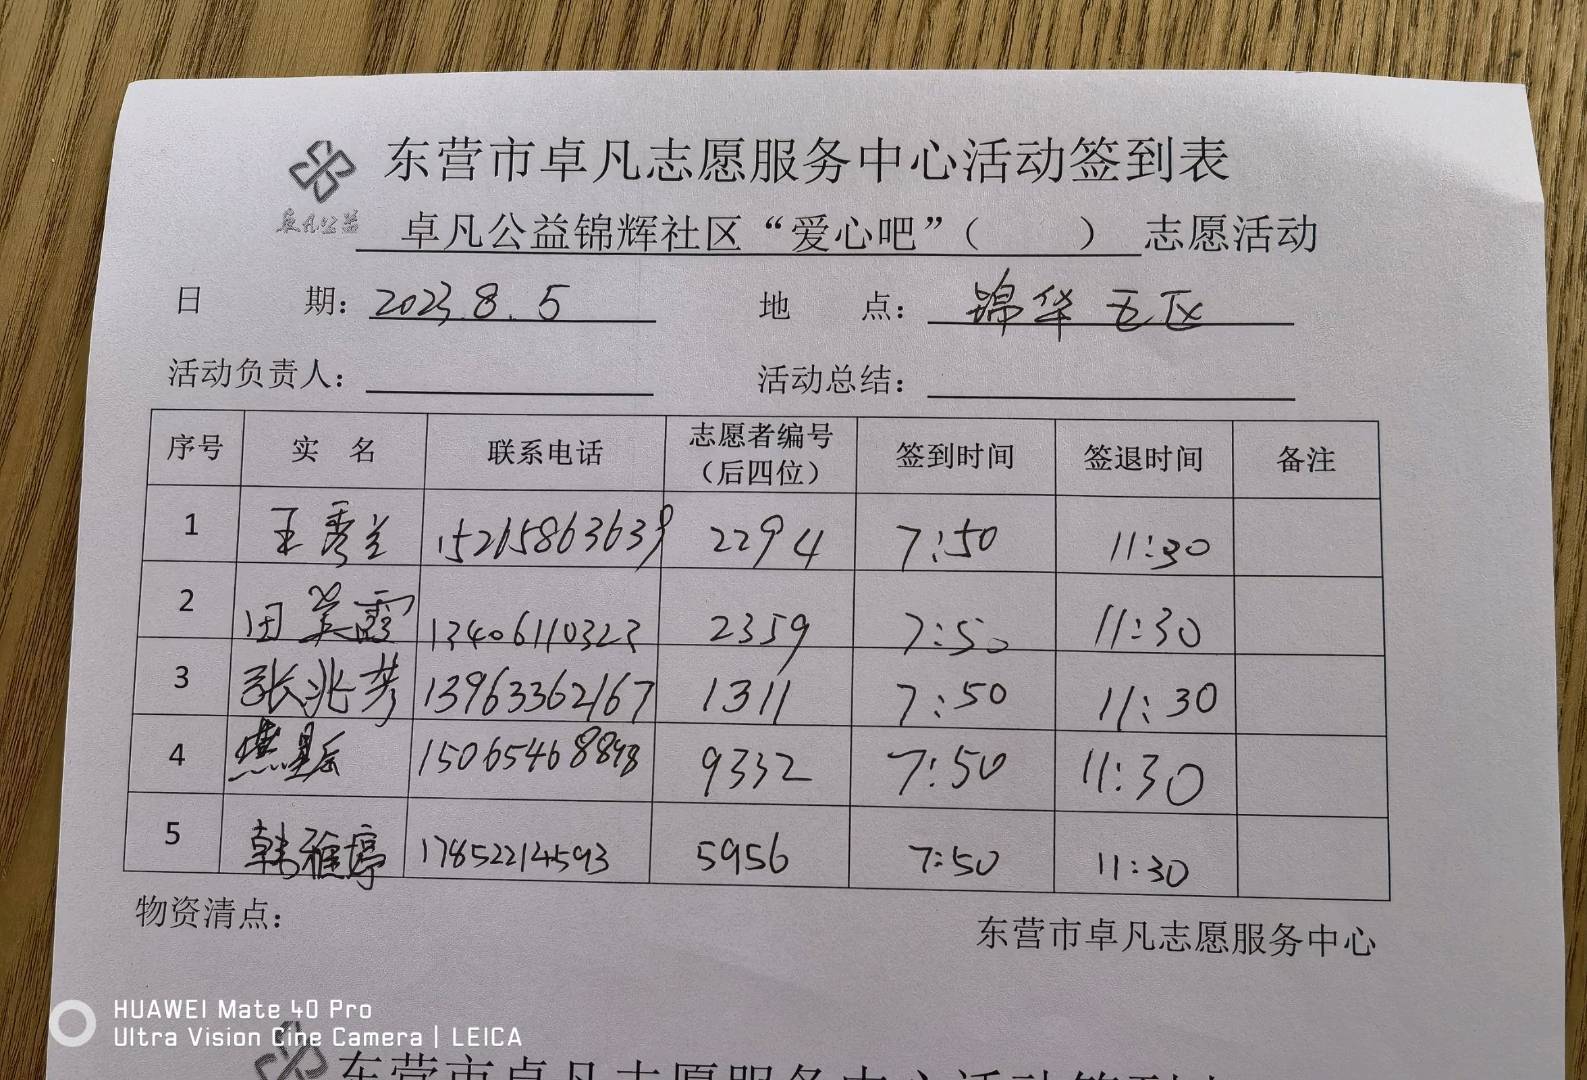 东营市卓凡志愿服务中心活动签到表
卓凡公益
卓凡公益锦辉社区“爱心吧”（ ）志愿活动
日 期：2023.8.5 地 点：锦华五区
活动负责人： 活动总结：
序号 实 名 联系电话 志愿者编号（后四位） 签到时间 签退时间 备注
1 王秀兰 15215863639 2294 7:50 11:30
2 田英霞 13406110323 2359 7:50 11:30
3 张兆芳 13963362167 1311 7:50 11:30
4 15065468898 9332 7:50 11:30
5 韩雅婷 17852214593 5956 7:50 11:30
物资清点：
东营市卓凡志愿服务中心
HUAWEI Mate 40 Pro
Ultra Vision Cine Camera | LEICA
东营市卓凡志愿服务中心活动签到表